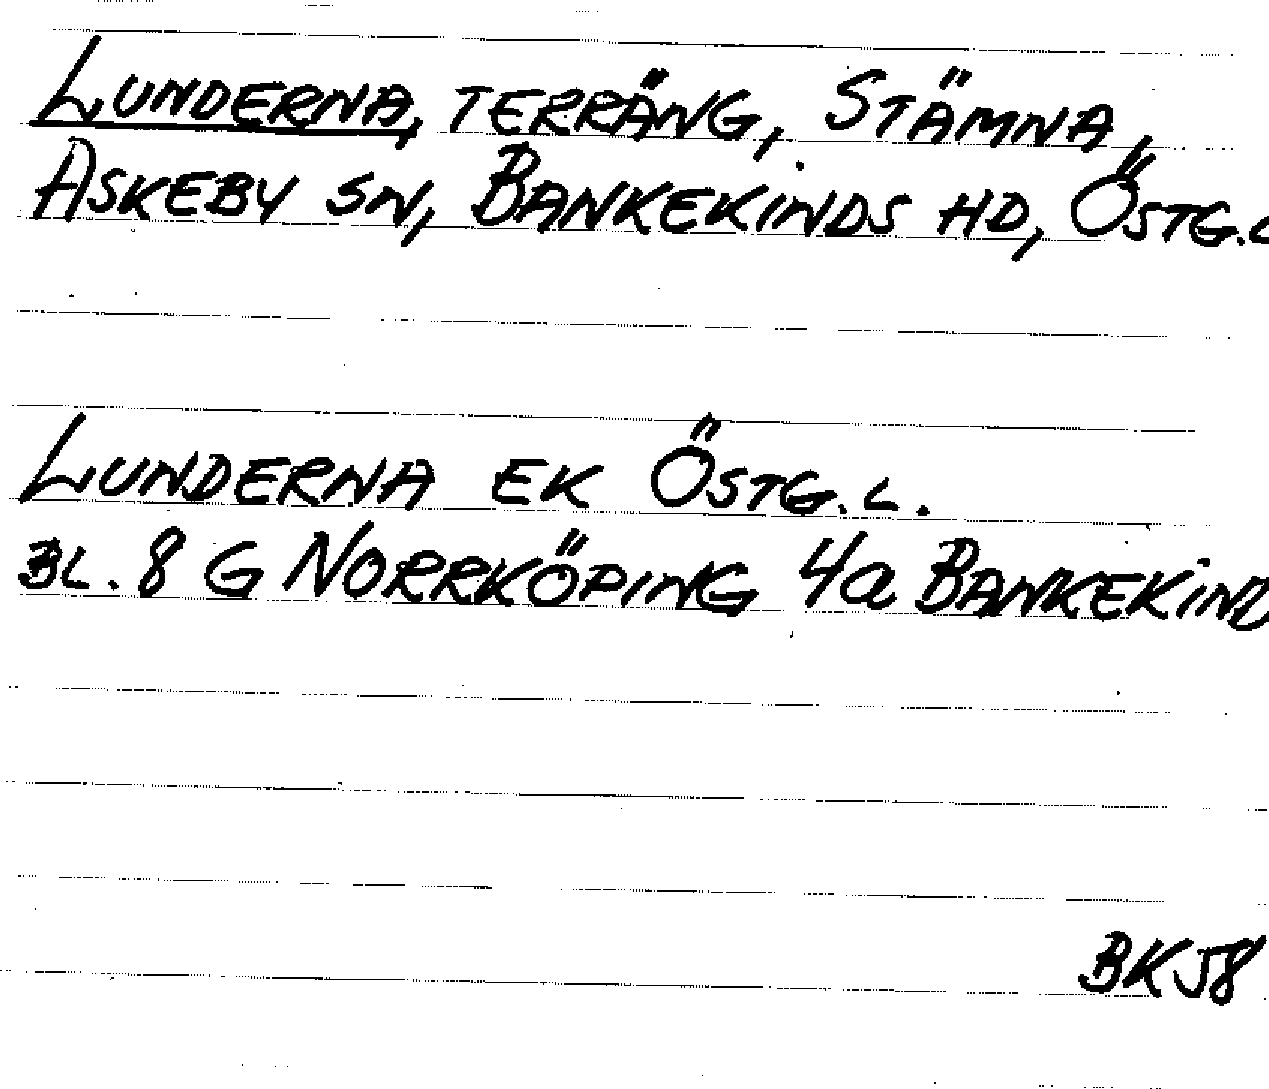 LUNDERNA, TERRÄNG, STÄMNA,
ASKEBY SN, BANKEKINDS HD, ÖSTG.L
LUNDERNA EK ÖSTG.L.
BL. 8 G NORRKÖPING 4a BANKEKIND
BK58